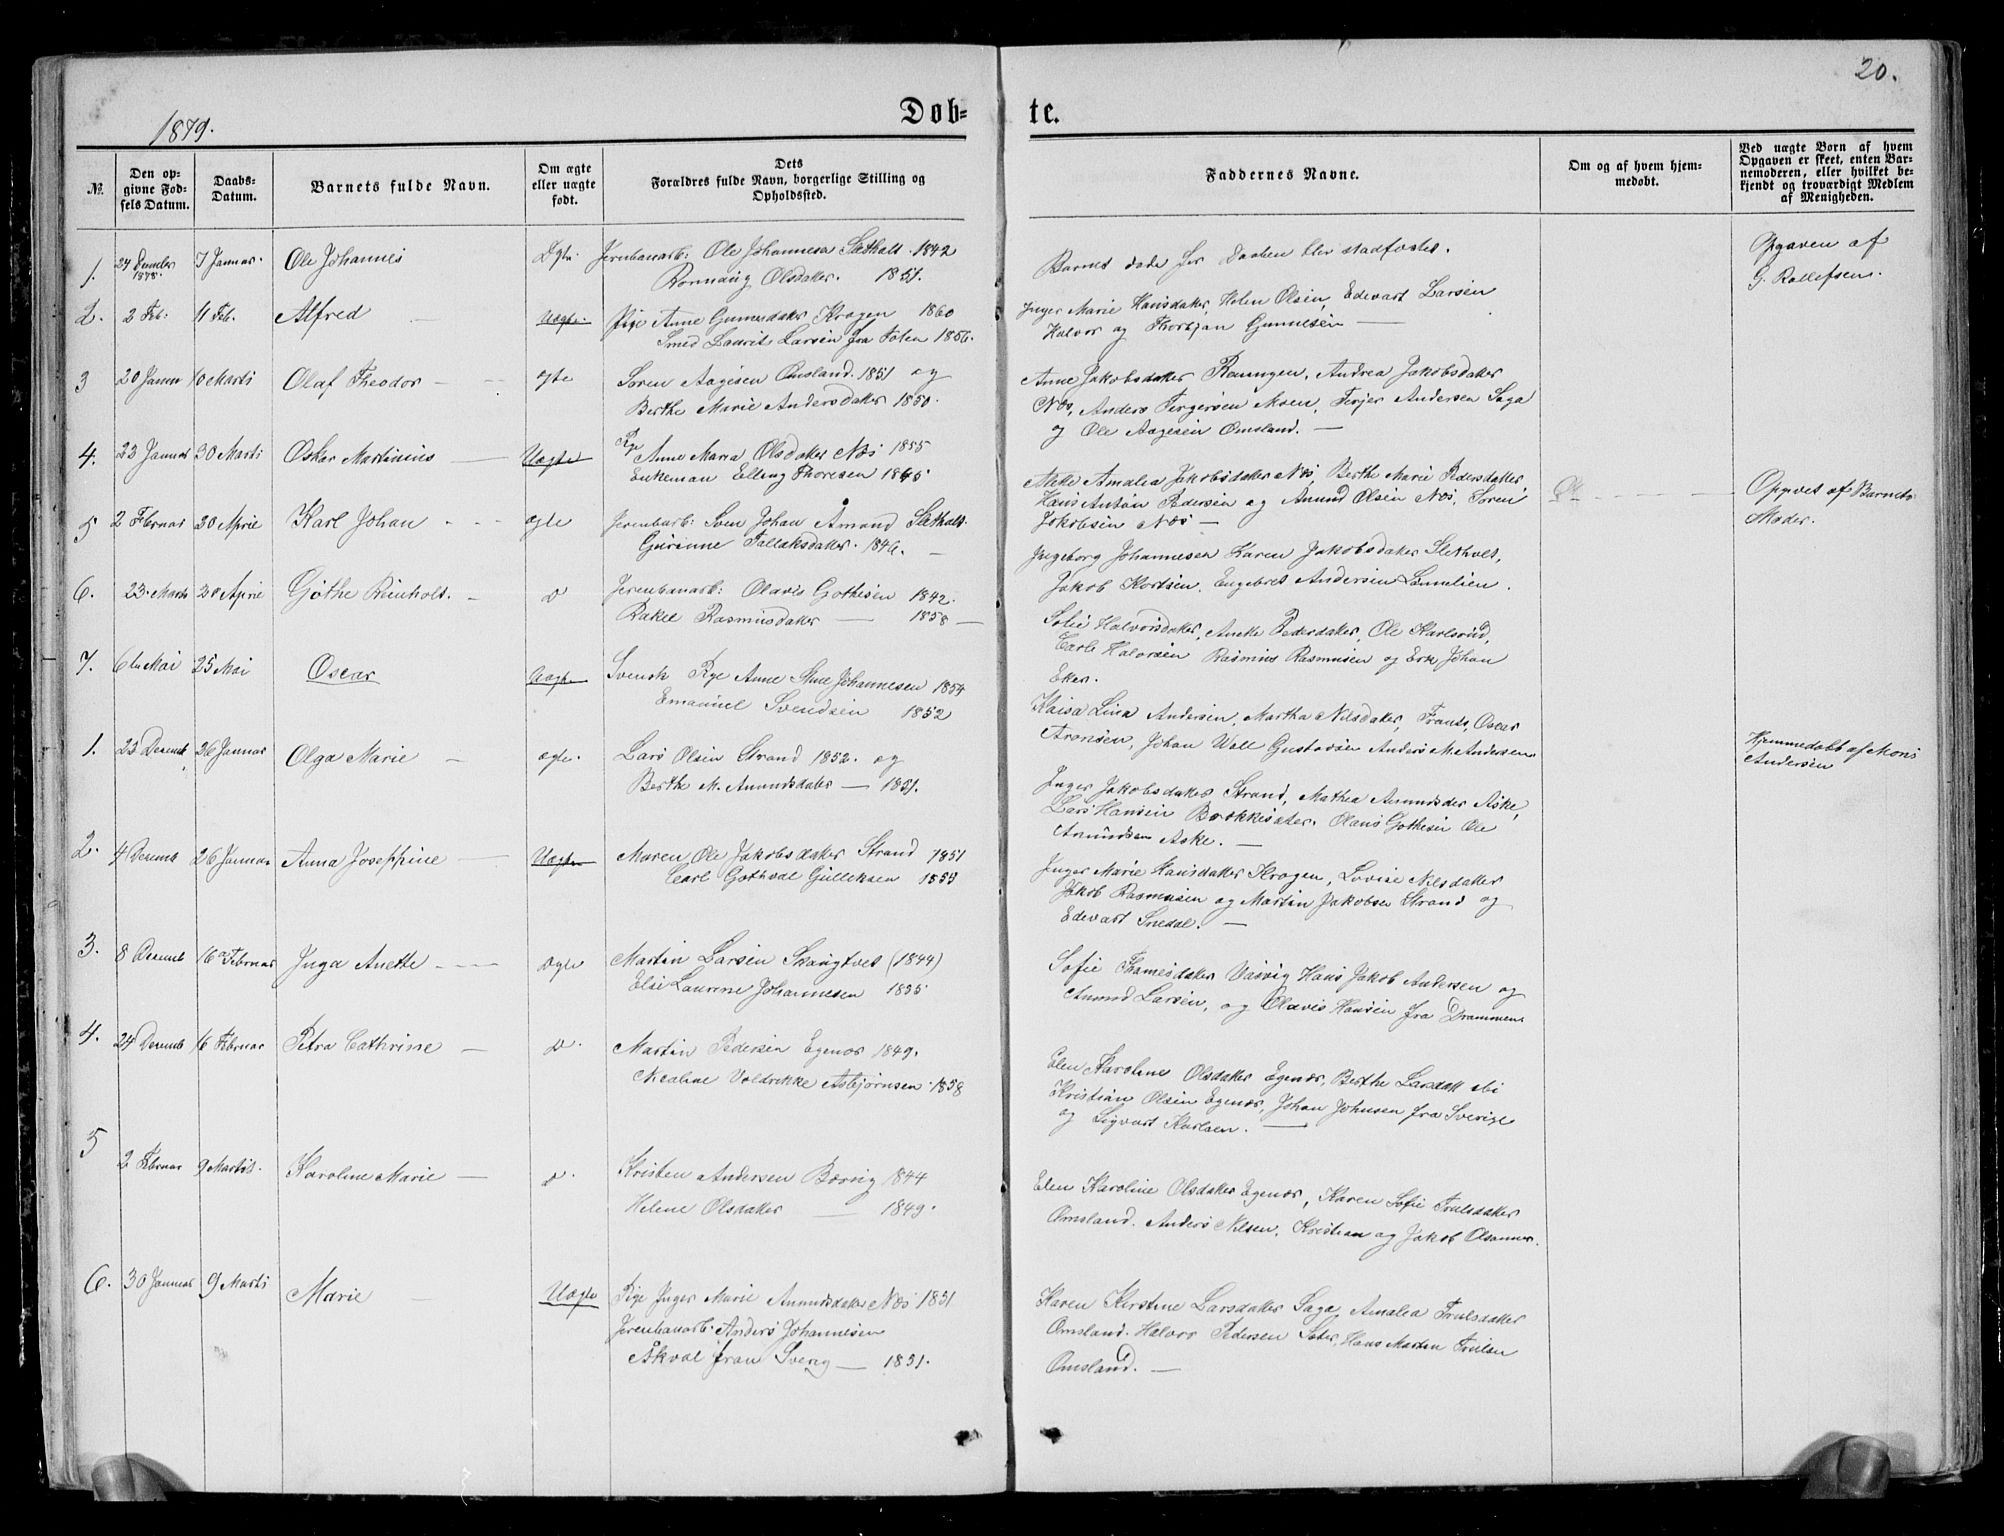 20.
1879.
Døb=
te.
№.
Den op-
givne Fød-
sels Datum.
Daabs-
Datum.
Barnets fulde Navn.
Om ægte
eller uægte
født.
Dets
Forældres fulde Navn, borgerlige Stilling og
Opholdssted.
Faddernes Navne.
Om og af hvem hjem-
medøbt.
Ved uægte Børn af hvem
Opgaven er skeet, enten Bar-
nemoderen, eller hvilket be-
kjendt og troværdigt Medlem
af Menigheden.
1. 24 1878. 7 Januar. Ole Johannes Ægte. Jernbanarb: Ole Johannesen 1842
Olsdater. 1851.
Barnet døde før Daaben blev stadfæstet.
Opgaven af
G. Rollefsen.
2. 2 Feb: 11 Feb. Alfred — Uægte. Pige Anne Gunersdater Kragen 1860
Smed Laurits Larsen fra Toten 1856.
Inger Marie Hansdater, Helen Olsen, Edevart Larsen
Halvor og Thorbjøn Gunnesen —
3 20 Januar 10 Marts Olaf Theodor — ægte Søren Aagesen Omsland. 1851 og
Berthe Marie Andersdater 1850.
Anne Jakobsdater Rønningen, Andrea Jakobsdater
Næs, Anders Tergersen Moen, Terjer Andersen Saga
og Ole Aagesen Omsland. —
4. 23 Januar 30 Marts Oskar Martinius — Uægte Pige Anne Marea Olsdater Næs 1855
Enkeman Elling Thoresen 1845.
Amalea Jakobsdater Næs, Berthe Marie Pedersdatter
Hans Anton Pedersen og Amund Olsen Næs, Søren
Jakobsen Næs —
Opgivet af Barnets
Moder.
5 2 Februar 30 Aprie Karl Johan — ægte Jernbarb: Sven Johan Åmand
Gurinne Tallaksdater. 1846. —
Ingeborg Johannesen Karen Jakobsdater
Jakob Kortsen, Engebret Andersen
6. 23. Marts Aprie Gøthe Reinholt. — Jernbanarb: Olavis Gothesen 1842.
Rakel Rasmusdater — 1858 —
Sofie Halvorsdater, Aneke Pedersdater, Ole Karlsrud,
Carle Halvorsen Rasmus Rasmusen og Erk Johan
Eker.
7. 6te Mai 25 Mai Oscar Uægte Svensk Pige Anne Stine Johannesen 1854
Emanuel Svendsen 1852
Kaisa Lina Andersen, Martha Nilsdater, Frants, Oscar
Aronsen, Johan Gustavsen Anders M. Andersen
1. 23 Decemb 26 Januar Olga Marie — ægte. Lars Olsen Strand 1852. og
Berthe M. Amundsdater — 1851.
Inger Jakobsdater Strand, Mathea Amundsder Aske,
Lars Hansen Olaus Gothesen Ole
Amundsen Aske. —
Hjemmedøbt af Mons
Andersen
2. 4 Decemb 26 Januar Anna Joseppine — Uægte Maren Ole Jakobsdater Strand 1851
Carl Gothval Gulleksen 1853
Inger Marie Hansdater Kragen, Lovise Nilsdater
Jakob Rasmusen og Martin Jakobsen Strand og
Edevart Snedal. —
3. 8 Decemb 16 Februar Inga Anette — Ægte Martin Larsen (1844)
Else Laurene Johannesen 1855
Sofie Thomesdater Hans Jakob Andersen og
Amund Larsen, og Olavis Hansen fra Drammen
4. 24 Decemb 16 Februar Petra Cathrine — Martin Pedersen Egenæs 1849.
Asbjørnsen 1858
Elen Karoline Olsdater Egenæs, Berthe
Kristian Olsen Egenæs, Johan Johnsen fra Sverige
og Sigvart Karlsen. —
5 2 Februar 9 Marts. Karoline Marie — Kristen Andersen 1844
Helene Olsdater — 1849.
Elen Karoline Olsdater Egenæs, Karen Sofie Trulsdater
Omsland. Anders Nilsen, Kristian og Jakob
6. 30 Januar 9 Marts Marie — Uægte Pige Inger Marie Amundsdater Næs 1851
Jernbanarb. Anders Johannesen
Åkval fran Sverig — 1851.
Karen Kirstine Larsdater Saga, Amalea Trulsdater
Omsland. Halvor Pedersen Hans Morten Trulsen
Omsland. —